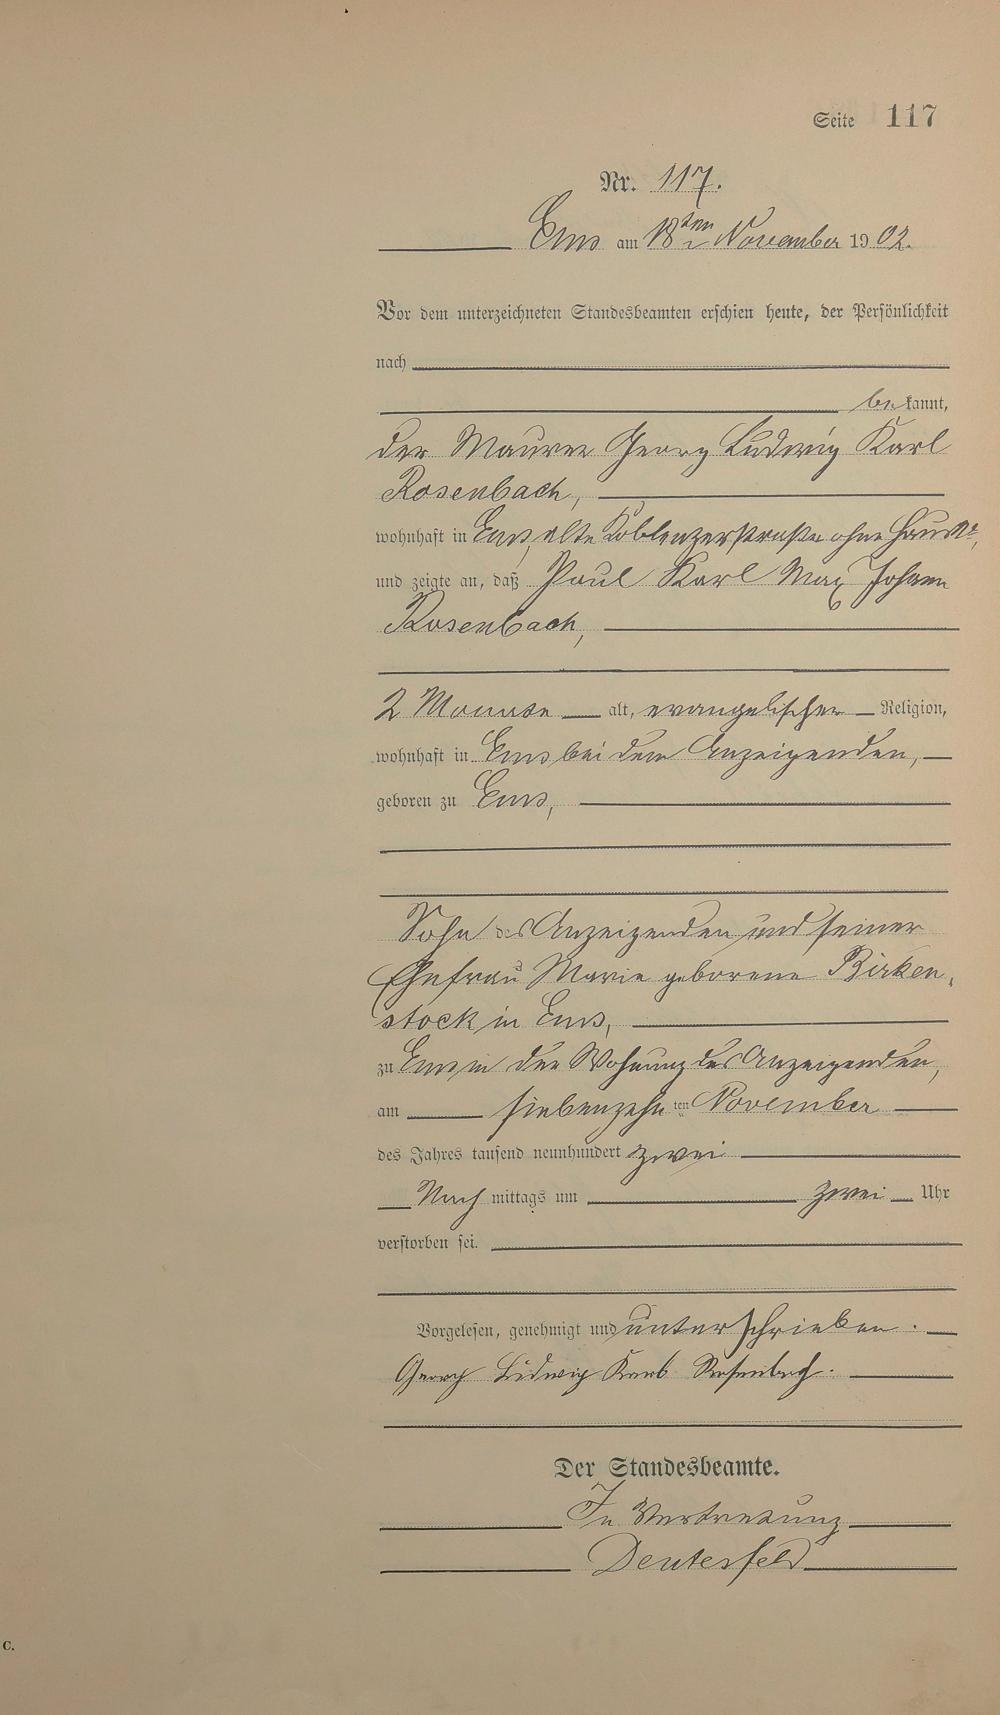 Seite 117
Nr. 117.
Ems am 18ten November 1902.
Vor dem unterzeichneten Standesbeamten erschien heute, der Persönlichkeit
nach
bekannt,
der Maurer Georg Ludwig Karl
Rosenbach,
wohnhaft in Ems, alte Koblenzerstraße ohne Haus Nr,
und zeigte an, daß Paul Karl Max Johann
Rosenbach,
2 Monate alt, evangelischer Religion,
wohnhaft in Ems bei dem Anzeigenden,
geboren zu Ems,
Sohn des Anzeigenden und seiner
Ehefrau Marie geborene Birken-
stock in Ems,
zu Ems in der Wohnung des Anzeigenden,
am siebenzehnten November
des Jahres tausend neunhundert zwei
Nach mittags um zwei Uhr
verstorben sei.
Vorgelesen, genehmigt und unterschrieben.
Georg Ludwig Karl Rosenbach.
Der Standesbeamte.
In Vertretung
Deutesfeld
C.